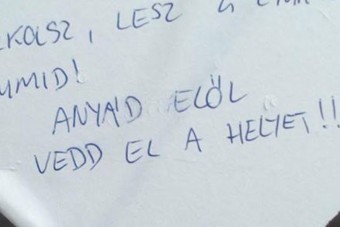 KOLSZ, LESZ A
UMMID!
ANYA'D ELŐL
VEDD EL A HELYET!!